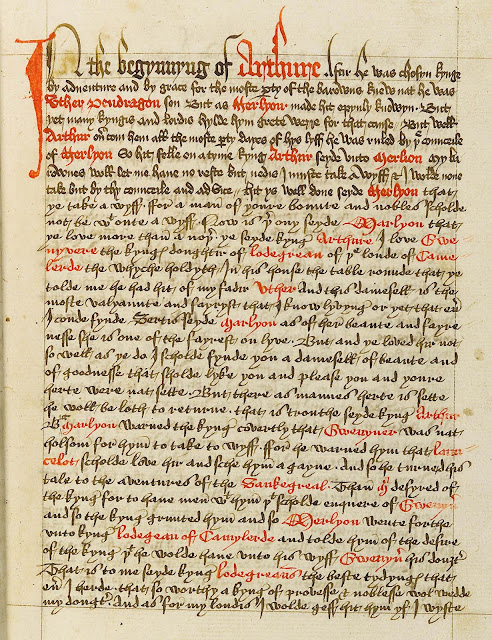 In the begynnyng of Arthure Afftir he was chosyn kynge
by adventure and by grace for the moste pty of the barowns knew nat he was
Uther Pendragon son But as Merlyon made hit opynly knowyn. But
yet many kyngis and lordis hylde hym grete werre for that cause / But well
Arthur ovircom hem all the moste pty dayes of hys lyff he was ruled by ye counceile
of Merlyon So hit felle on a tyme kyng Arthur seyde unto Merlion my ba
rownes woll let me have no reste but nedis I muste take a wyff & I wolde none
take but by thy counceile and advice / hit ys well done seyde Merlyon that
ye take a wyff / for a man of youre bounte and nobles scholde
not be wt oute a wyff / Now is yr ony seyde Marlyon that
ye love more than a nor / ye seyde kyng Arthure I love Gwe
nyvere the kynges doughtir of lodegrean of ye londe of Came
lerde the whyche holdyth In his house the table rounde that ye
tolde me he had hit of my fadir Uther And this damesell is the
moste valyaunte and fayryst that I know lyvyng or yet that evir
I coude fynde / Sertis seyde Marlyon as of her beaute and fayre
nesse she is one of the fayrest on lyve. But and ye loved hir not
so well as ye do I scholde fynde you a damesell of beaute and
of goodnesse that sholde lyke you and please you and youre
herte were nat sette. But there as mannes herte is sette
he woll be loth to returne / that is trouthe seyde kyng Arthur
But Marlyon warned the kyng covertly that Gwenyver was nat
holsom for hym to take to wyff. for he warned hym that laun
celot scholde love hir and sche hym agayne. And so he turned his
tale to the aventures of the Sankegreal. Than M desyred of
the kyng for to have men wt hym yt scholde enquere of Gwenyver
and so the kyng graunted hym and so Merlyon wente forthe
unto kyng lodegean of Camylerde and tolde hym of the desire
of the kyng yt he wolde have unto his wyff Gwenyvir his douztr
That is to me seyde kyng lodegreauns the beste tydynges that
evir I herde. that so worthy a kyng of provesse & noblesse wol wedde
my douztr. And as for my londis I wolde geff hit hym yf I wyste